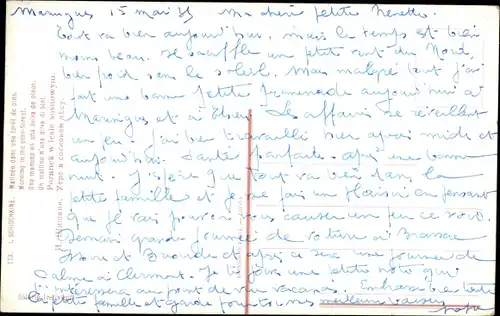 Maringues 15 mai 35 Ma chère petite Nenette.
Tout va bien aujourd'hui, mais le temps est bien
moins beau. Il souffle un petit vent du Nord,
bien froid sans le soleil. Mais malgré tout j'ai
fait une bonne petite promenade aujourd'hui à
Maringues et à Les affaires se réveillent
un peu. J'ai bien travaillé hier après midi et
aujourd'hui. Santé parfaite. après une bonne
nuit. J'espère que tout va bien dans la
petite famille et je me fais un plaisir en pensant
que je vais pouvoir vous causer un peu ce soir.
Demain grande journée de voiture à Brassac
et Brioude et après ce sera une journée de
calme à Clermont. Je te joins une petite note qui
t'intéressera au point de vue vacances. Embrasse bien toute
la petite famille et garde pour toi mes meilleurs baisers
papa
713. I. SCHISCHKINE. Matinée dans une forêt de pins.
Morning in the pine-forest.
Una mañana en una selva de pinos.
Un mattino in una selva di pini.
Poranek w lesie sosnowym.
И. Шишкин. Утро в сосновом лесу.